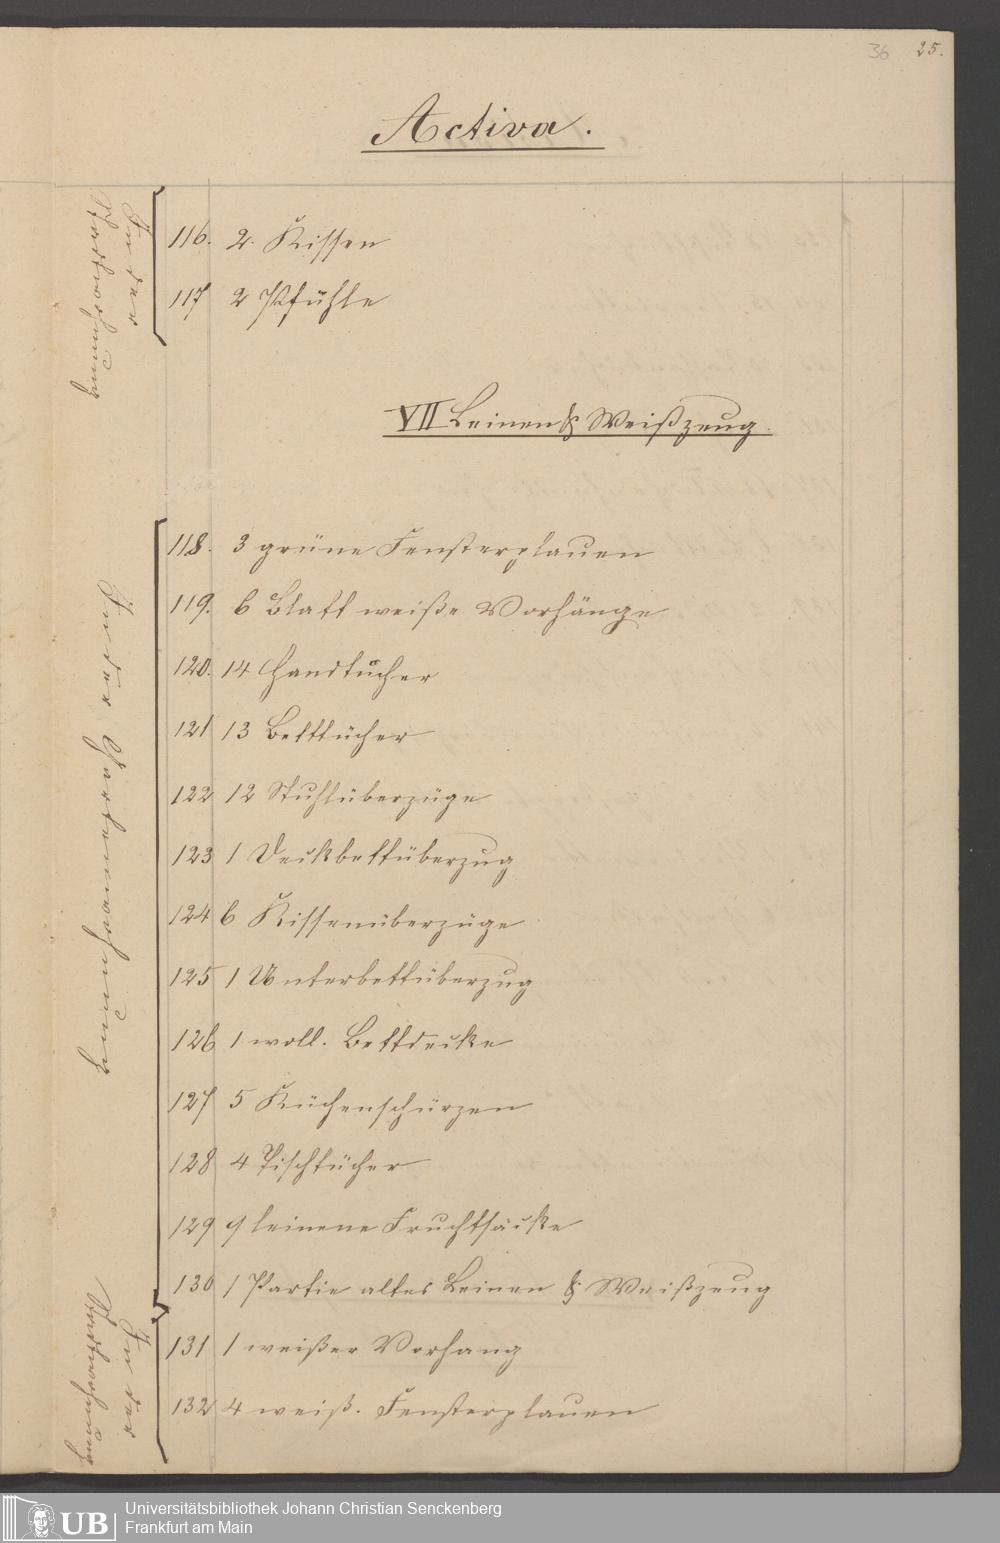 36 25.
Activa.
In der
116. 2. Kissen
117 2 Pfühle
VII Leinen & Weißzeug.
In der
118. 3 grüne Fensterplauen
119. 6 Blatt weiße Vorhänge
120. 14 Handtücher
121 13 Betttücher
122 12 Stuhlüberzüge
123 1 Deckbettüberzug
124 6 Kissenüberzüge
125 1 Unterbettüberzug
126 1 woll. Bettdecke
127 5 Küchenschürzen
128 4 Tischtücher
129 9 leinene Fruchtsäcke
130 1 Partie altes Leinen & Weißzeug
In der
131 1 weißer Vorhang
132 4 weiß. Fensterplauen
UB
Universitätsbibliothek Johann Christian Senckenberg
Frankfurt am Main